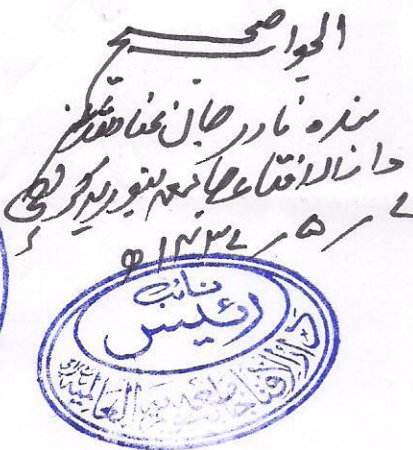 الجواب صحيح
بندہ نادر جان عفا اللہ عنہ
دارالافتاء جامعہ بنوریہ کراچی
۷ / ۵ / ۱۴۳۷ ھ
نائب
رئیس
دار الافتاء جامعہ بنوریہ العالمیہ